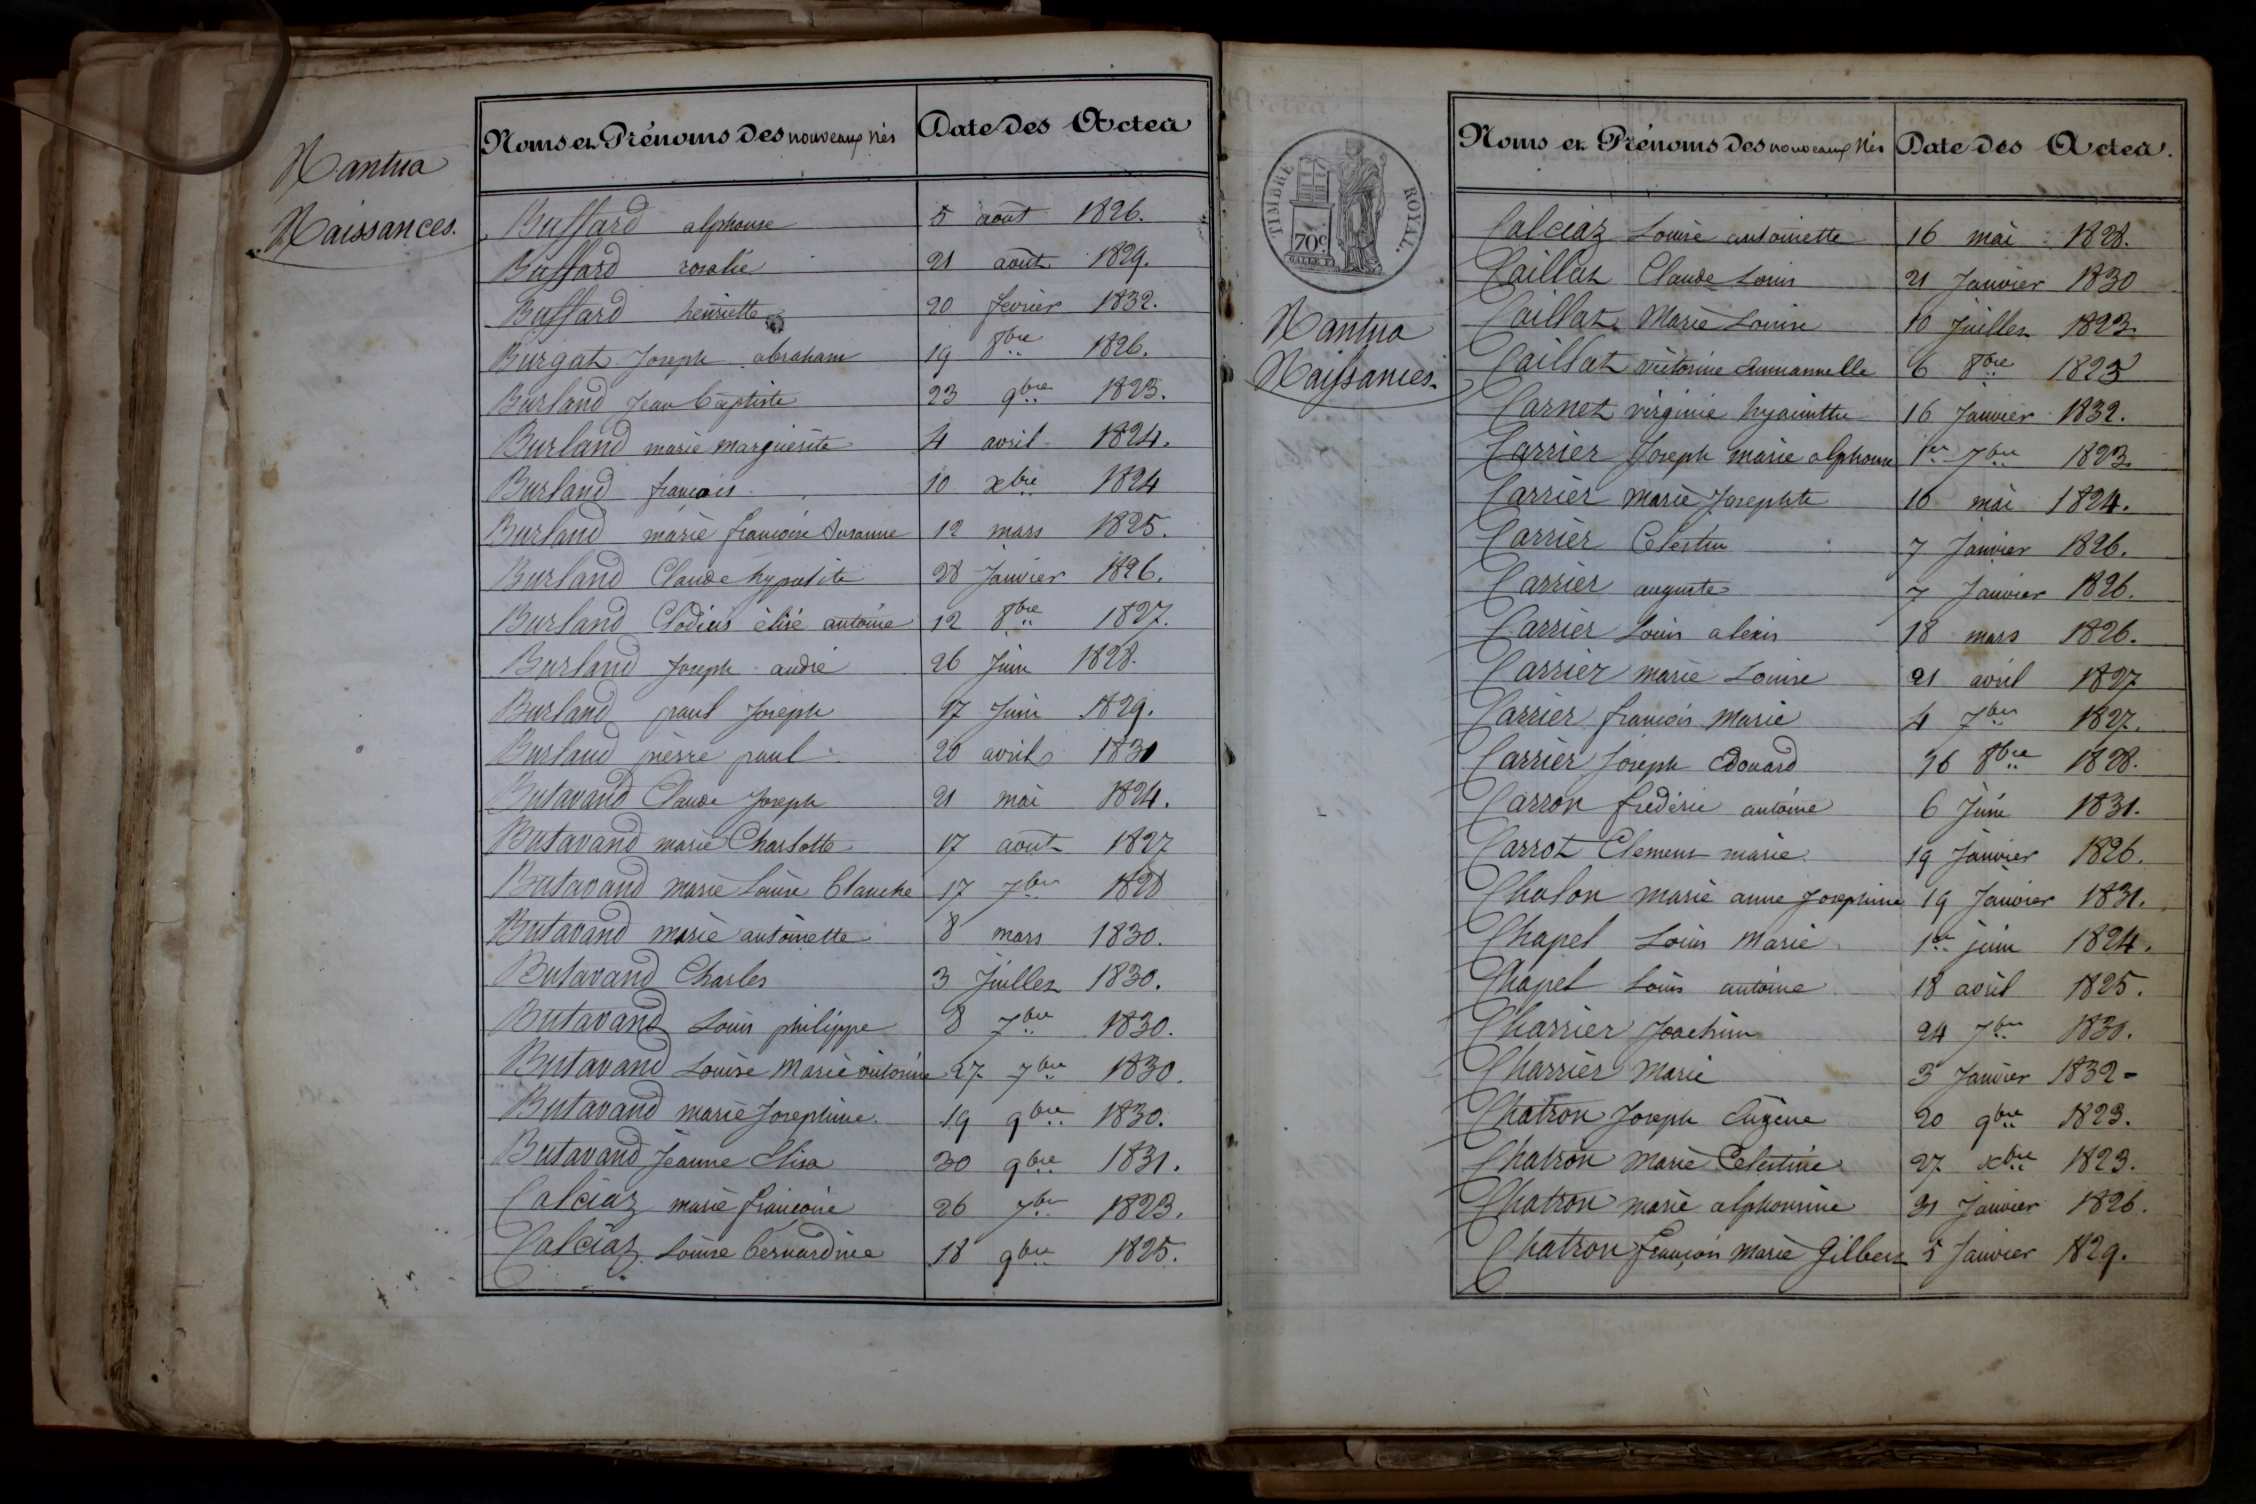 Nantua
Naissances.
Noms et Prénoms des nouveaux nés Date des Actes
Buffard alphonse 5 août 1826.
Buffard rosalie 21 août 1829.
Buffard henriette 20 fevrier 1832.
Burgat Joseph abraham 19 8bre 1826.
Burland Jean baptiste 23 9bre 1823.
Burland marie marguerite 4 avril 1824.
Burland francois 10 xbre 1824
Burland marie francoise Susanne 12 mars 1825.
Burland Claude hypolite 28 Janvier 1826.
Burland Clodius élisé antoine 12 8bre 1827.
Burland Joseph andré 26 Juin 1828.
Burland paul Joseph 17 Juin 1829.
Burland pierre paul 20 avril 1831
Butavand Claude Joseph 21 mai 1824.
Butavand marie Charlotte 17 août 1827
Butavand marie Louise Claudie 17 7bre 1828
Butavand marie antoinette 8 mars 1830.
Butavand Charles 3 Juillet 1830.
Butavand Louis philippe 8 7bre 1830.
Butavand Louise Marie victorine 27 7bre 1830.
Butavand marie Josephine 19 9bre 1830.
Butavand Jeanne Elisa 30 9bre 1831.
Calciaz marie francoise 26 7bre 1823.
Calciaz Louise bernardine 18 9bre 1825.
TIMBRE ROYAL.
70c
Nantua
Naissances.
Noms et Prénoms des nouveaux Nés Date des Actes.
Calciaz Louise antoinette 16 mai 1828.
Caillat Claude Louis 21 Janvier 1830
Caillat Marie Louise 10 Juillet 1823.
Caillat victorine Emmannuelle 6 8bre 1823
Carnet virginie hyacinthe 16 Janvier 1832.
Carrier Joseph marie alphonse 1er 7bre 1823.
Carrier marie Josephte 10 mai 1824.
Carrier Celestin 7 Janvier 1826.
Carrier auguste 7 Janvier 1826.
Carrier Louis alexis 18 mars 1826.
Carrier marie Louise 21 avril 1827
Carrier francois Marie 4 7bre 1827.
Carrier Joseph Edouard 26 8bre 1828.
Carron frédéric antoine 6 Juin 1831.
Carrot Clement marie 19 Janvier 1826.
Chalon marie anne Josephine 19 Janvier 1831.
Chapel Louis Marie 1er juin 1824.
Chapel Louis antoine 18 avril 1825.
Charrier Joachim 24 7bre 1830.
Charrier Marie 3 Janvier 1832 -
Chatron Joseph Eugène 20 9bre 1823.
Chatron Marie Celestine 27 xbre 1823.
Chatron marie alphonsine 31 Janvier 1826.
Chatron francois marie Gilbert 5 Janvier 1829.